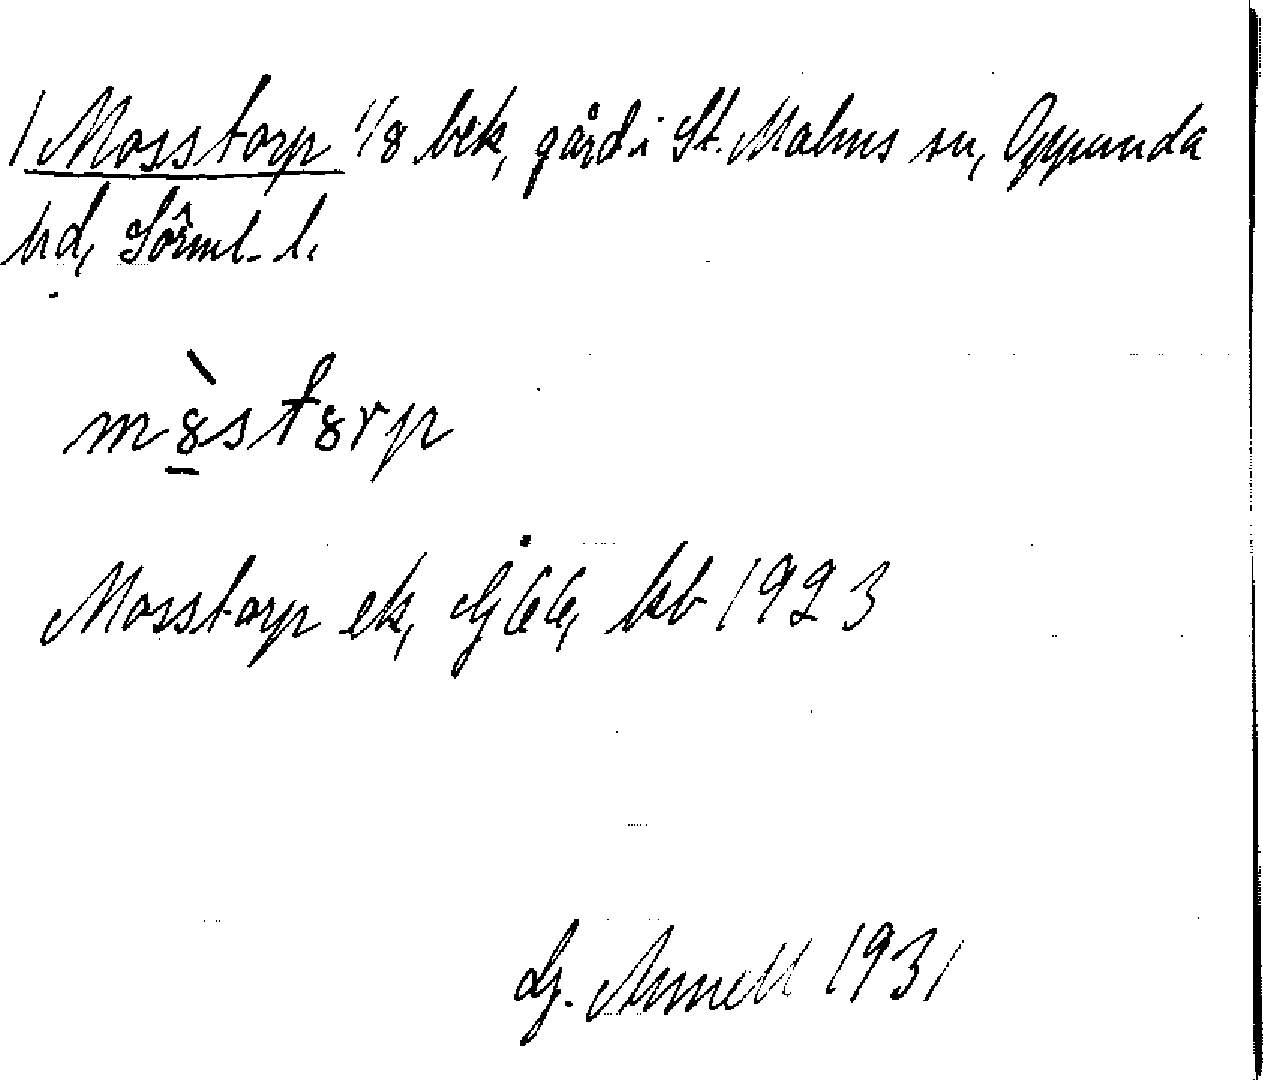 1 Mosstorp 1/8 bek, gård i St. Malms sn, Oppunda
hd, Sörml. l.
mòstorp
Mosstorp ek, kb 1923
G. Arnell 1931